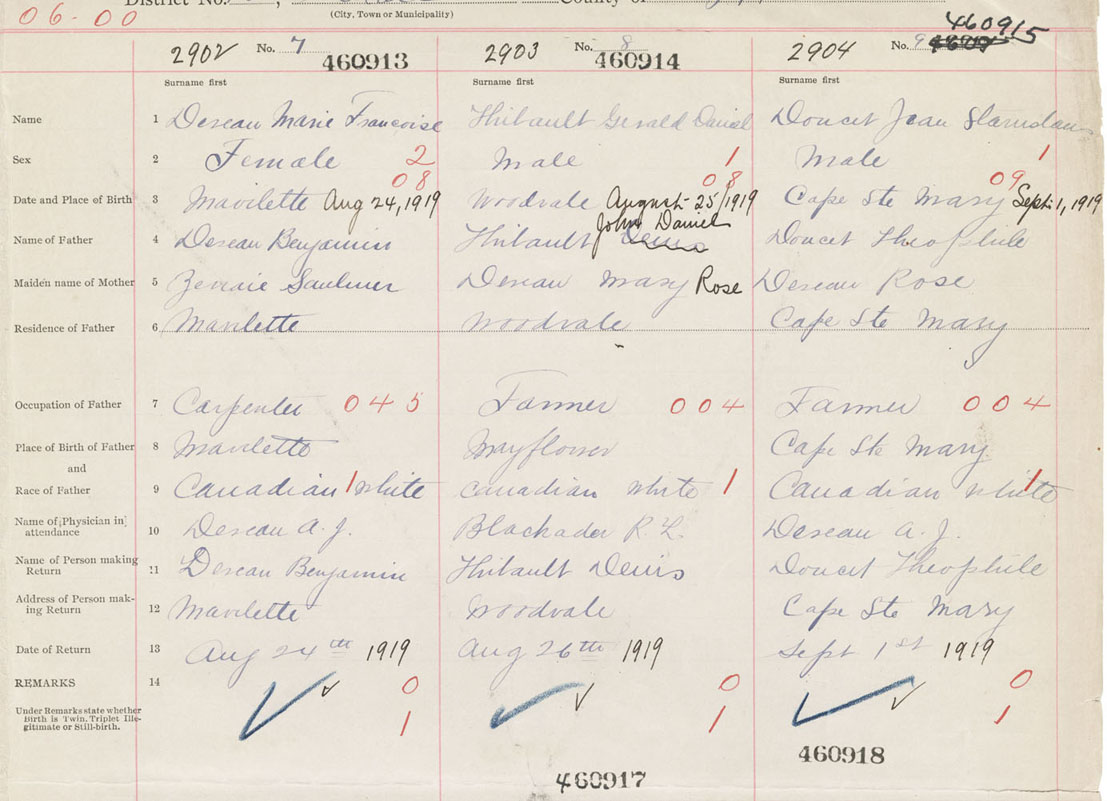 06-00
District No. County of
(City, Town or Municipality)
2902 No. 7 460913 2903 No. 8 460914 2904 No. 9 460915
Surname first Surname first Surname first
Name 1 Deveau Marie Francoise Thibault Gerald Daniel Doucet Jean Stanislaus
Sex 2 Female 2 Male 1 Male 1
08 08 09
Date and Place of Birth 3 Mavilette Aug 24, 1919 Woodvale August 25/1919 Cape Ste Mary Sept. 1, 1919
John Daniel
Name of Father 4 Deveau Benjamin Thibault Denis Doucet Theophile
Maiden name of Mother 5 Zenaie Saulnier Deveau Mary Rose Deveau Rose
Residence of Father 6 Mavilette Woodvale Cape Ste Mary
Occupation of Father 7 Carpenter 045 Farmer 004 Farmer 004
Place of Birth of Father 8 Mavilette Mayflower Cape Ste Mary
and
Race of Father 9 Canadian 1 White Canadian White 1 Canadian White 1
Name of Physician in
attendance 10 Deveau A. J. Blackader R. L. Deveau A. J.
Name of Person making
Return 11 Deveau Benjamin Thibault Denis Doucet Theophile
Address of Person mak-
ing Return 12 Mavilette Woodvale Cape Ste Mary
Date of Return 13 Aug 24th 1919 Aug 26th 1919 Sept 1st 1919
REMARKS 14 0 0 0
Under Remarks state whether
Birth is Twin, Triplet Ille-
gitimate or Still-birth. 1 1 1
460917 460918